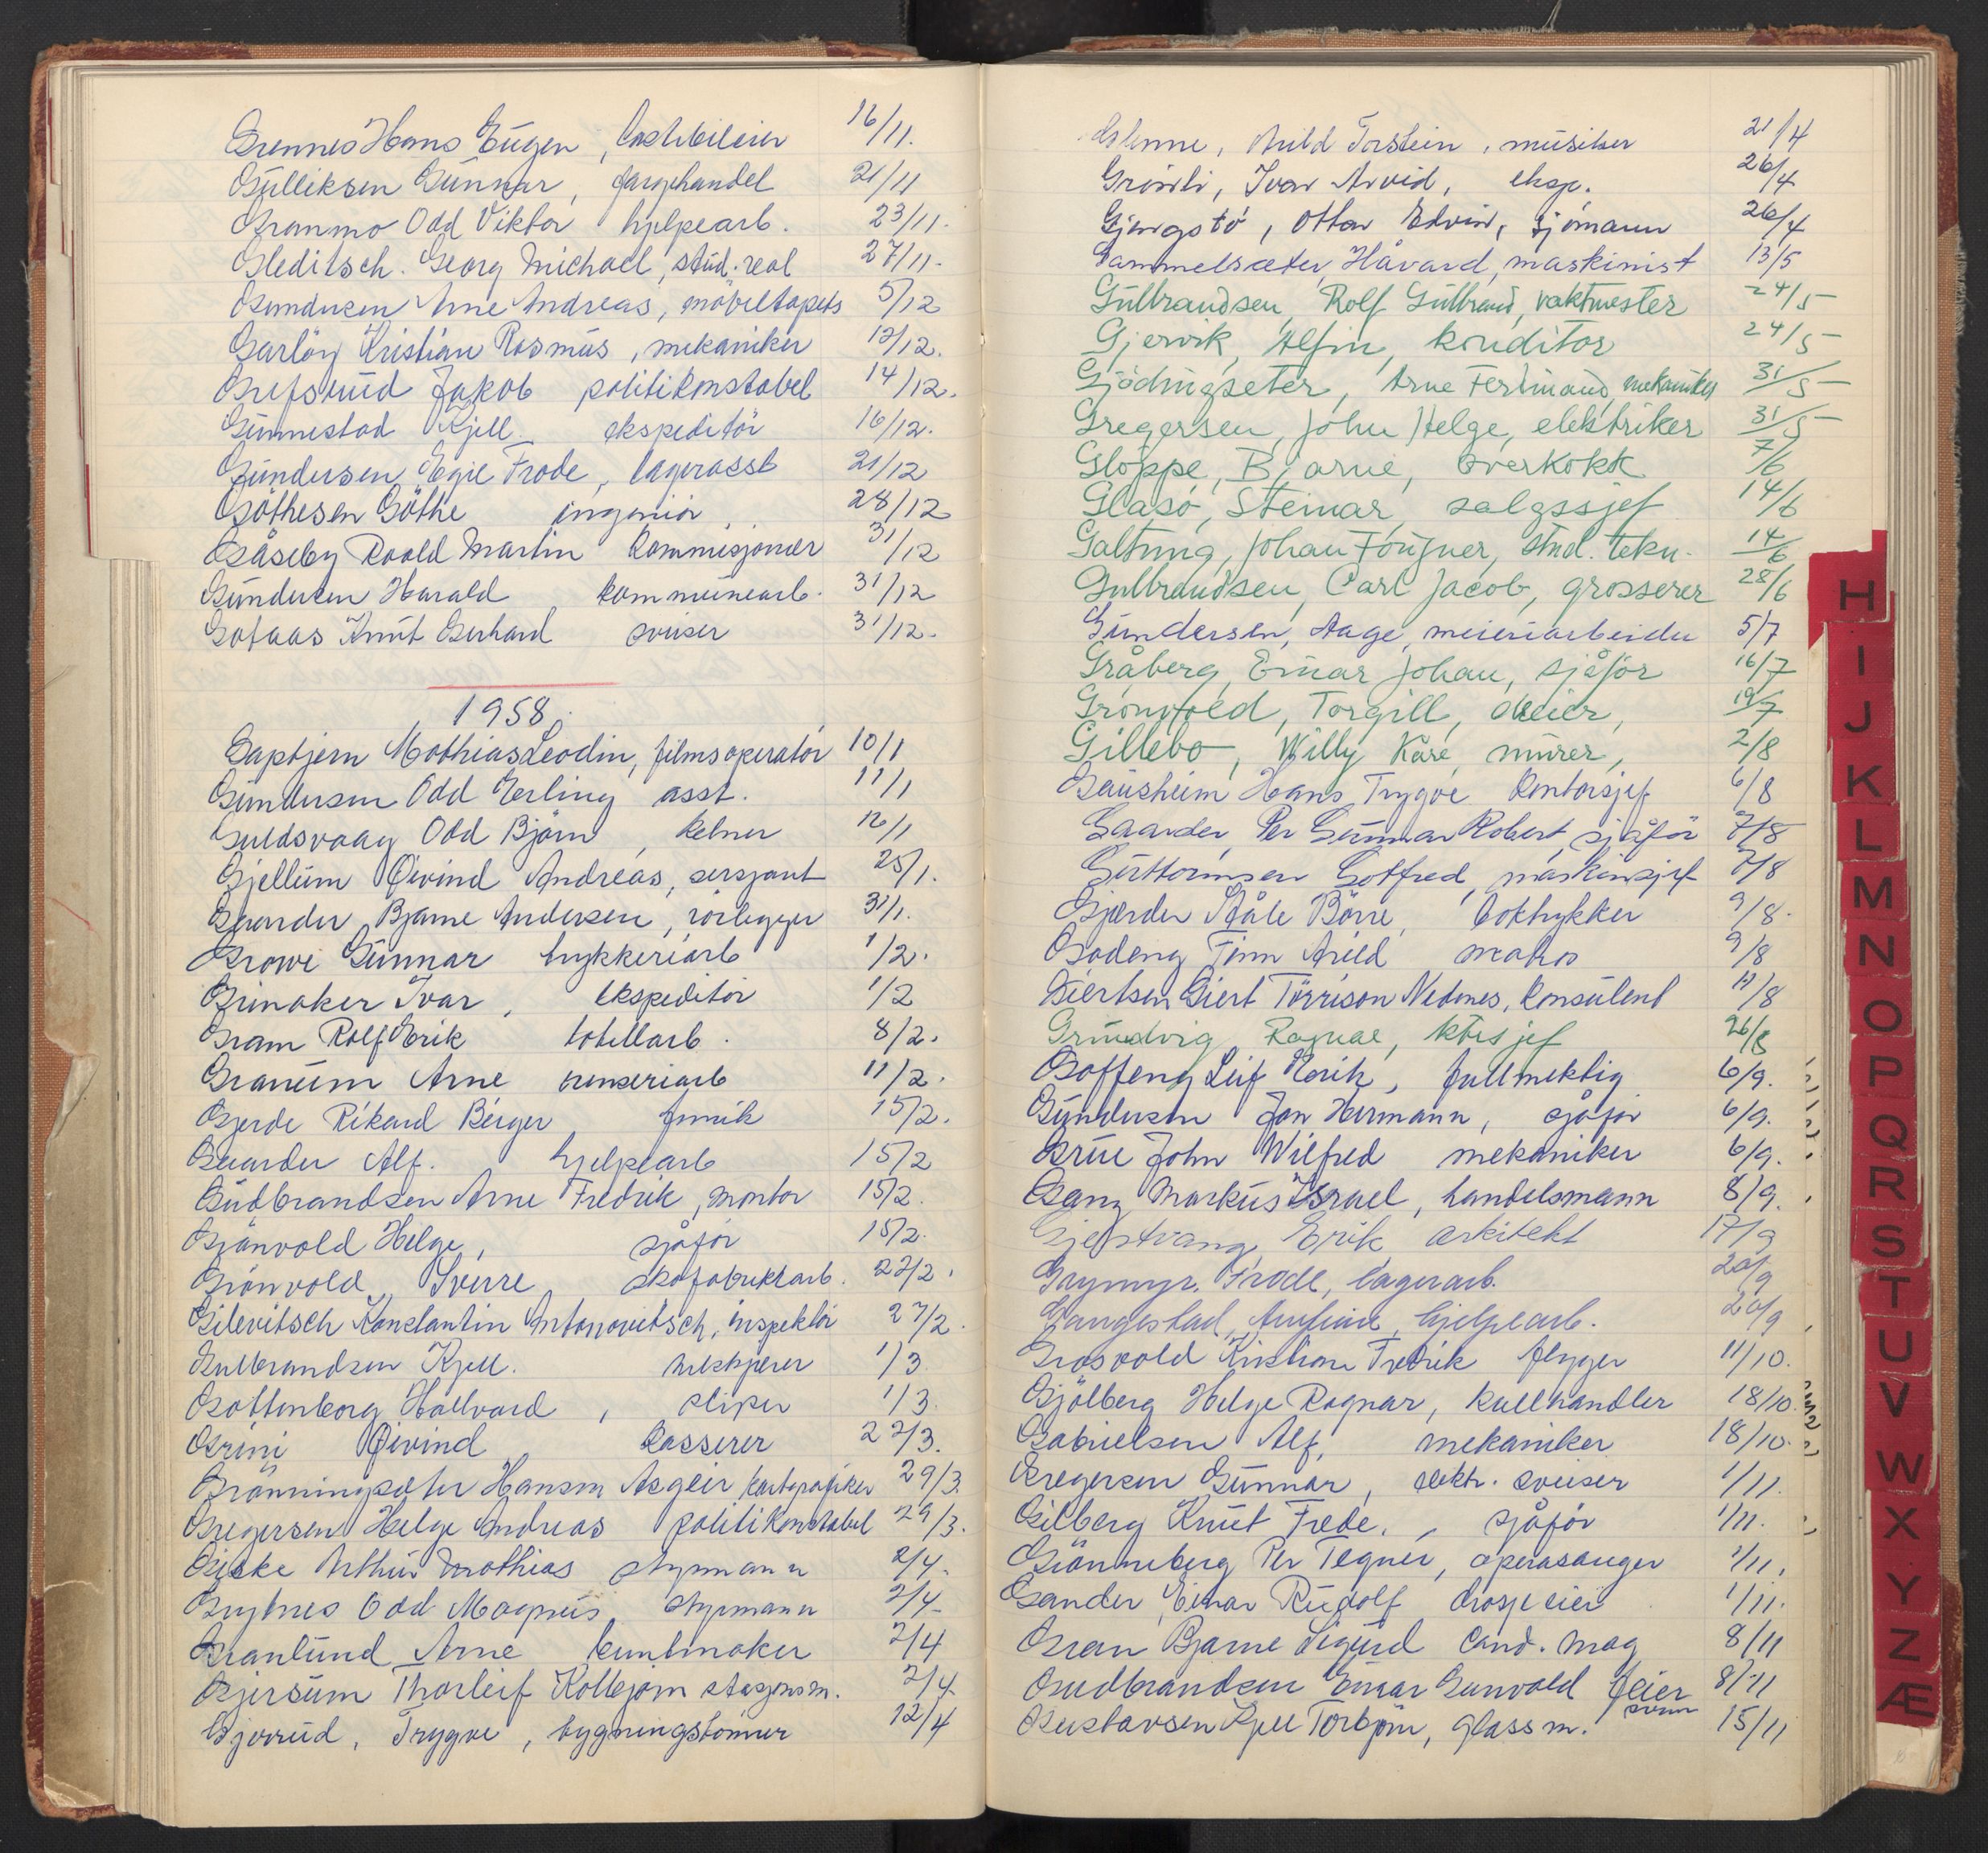 Grennes Hans Eugen, lastebileier 16/11.
Gulliksen Gunnar, fargehandel 21/11
Granmo Odd Viktor hjelpearb. 23/11.
Gleditsch. Georg Michael, stud. real 27/11.
Gundersen Arne Andreas, möbeltapets 5/12
Garlöv Kristian Rasmus, mekaniker 12/12.
Grefsrud Jakob politikonstabel 14/12.
Gunnestad Kjell. ekspeditör 16/12.
Gundersen Egil Frode, lagerasst 21/12
Göthesen Göthe ingeniör 28/12
Gåseby Roald Martin kommisjonær 31/12
Gundersen Harald kommunearb. 31/12
Gofaas Knut Gerhard sveiser 31/12.
1958.
Gaptjern Mathias Leodin, filmsoperatör 10/1
Gundersen Odd Erling asst. 11/1
Guldsvaag Odd Björn, kelner 12/1
Gjellum Øivind Andreas, sersjant 25/1.
Gaarder, Bjarne Andersen, rörlegger 31/1.
Growe Gunnar trykkeriarb 1/2.
Grinaker Ivar, ekspeditör 1/2
Gram Rolf Erik hotellarb. 8/2.
Granum Arne renseriarb 11/2.
Gjerde Rikard Birger 15/2.
Gaarder Alf. hjelpearb 15/2
Gudbrandsen Arne Fredrik, montör 15/2.
Grönvold Helge, sjåför 15/2.
Grönvold, Sverre skofabrikkarb. 22/2.
Gilevitsch Konstantin Antonovitsch, inspektör 27/2.
Gulbrandsen Kjell. 1/3
Gottenborg Hallvard, sliper 1/3.
Grini Øivind kasserer 22/3.
Grönningsæter Hansen Asgeir kartografiker 29/3.
Gregersen Helge Andreas politikonstabel 29/3.
Giske Arthur Mathias styrmann 2/4.
Grytnes Odd Magnus, styrmann 2/4
Granlund Arne buntmaker 2/4
Gjersum Thorleif Kolbjörn stasjonsm. 2/4
Gjerrud, Trygve, bygningstömrer 12/4
Glenne, Arild Torstein, musiker 21/4
Grinvli, Ivar Arvid, eksp. 26/4
Gjengstö, Ottar Edvin, sjömann 26/4
Gammelsæter, Håvard, maskinist 13/5
Gulbrandsen, Rolf Gulbrand, vaktmester 24/5
Gjervik, Alfin, konditor 24/5
Gjödingseter, Arne Ferdinand, mekaniker 31/5
Gregersen, John Helge, elektriker 31/5
Gloppe, Bjarne, overkokk 7/6
Glasö, Steinar, salgssjef 14/6
Galtung, Johan Fougner, stud. tekn. 14/6
Gulbrandsen, Carl Jacob, grosserer 28/6
Gundersen, Aage, meieriarbeider 5/7
Gråberg, Einar Johan, sjåför 16/7
Grönvold, Torgill, dreier, 19/7
Gillebo, Willy Kåre, murer, 2/8
Gausheim Hans Trygve kontorsjef 6/8
Gaarder, Per Gunnar Robert, sjåför 7/8
Guttormsen Gotfred, maskinsjef 7/8
Gjerder Ståle Börre, boktrykker 9/8.
Godeng Finn Arild matros 9/8
Giertsen Giert Törrison Nedenes, konsulent 11/8
Grundvig Ragnar, ktrsjef 26/8
Goffeng Leif Henrik, fullmektig 6/9.
Gundersen Jan Hermann, sjåför 6/9.
Grue John Wilfred mekaniker 6/9.
Ganz Markus Israel, handelsmann 8/9.
Gjestvang, Erik, arkitekt 17/9
Grymyr, Frode, lagerarb. 20/9
Gangestad, hjelpearb. 20/9
Grosvold Kristian Fredrik flyger 11/10.
Gjölberg Helge Ragnar, kullhandler 18/10.
Gabrielsen Alf, mekaniker 18/10.
Gregersen Gunnar, elektr. sveiser 1/11.
Gilberg Knut Frede, sjåför 1/11.
Grönneberg Per Tegner, operasanger 1/11.
Gander, Einar Rudolf drosjeeier 1/11.
Gran Bjarne Sigurd cand. mag 8/11
Gudbrandsen Einar Gunvald feiersvenn 8/11
Gustavsen Kjell Torbjörn, glassm. 15/11
H
I
J
K
L
M
N
O
P
Q
R
S
T
U
V
W
X
Y
Z
Æ